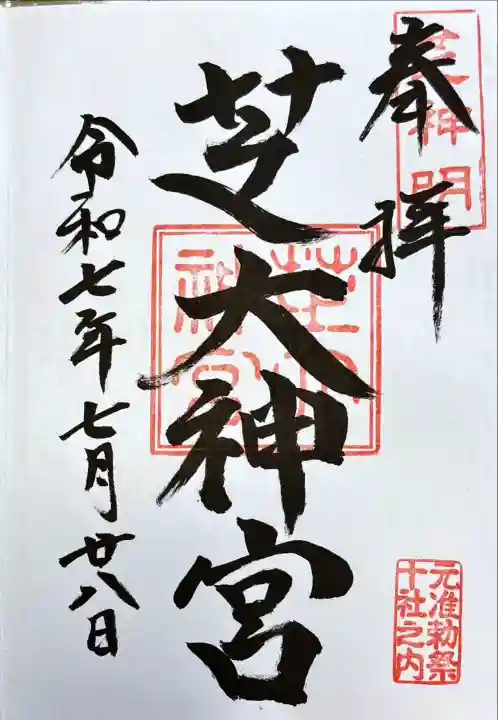 奉拝
芝神明
芝大神宮
芝大神宮
令和七年七月廿八日
元准勅祭
十社之内